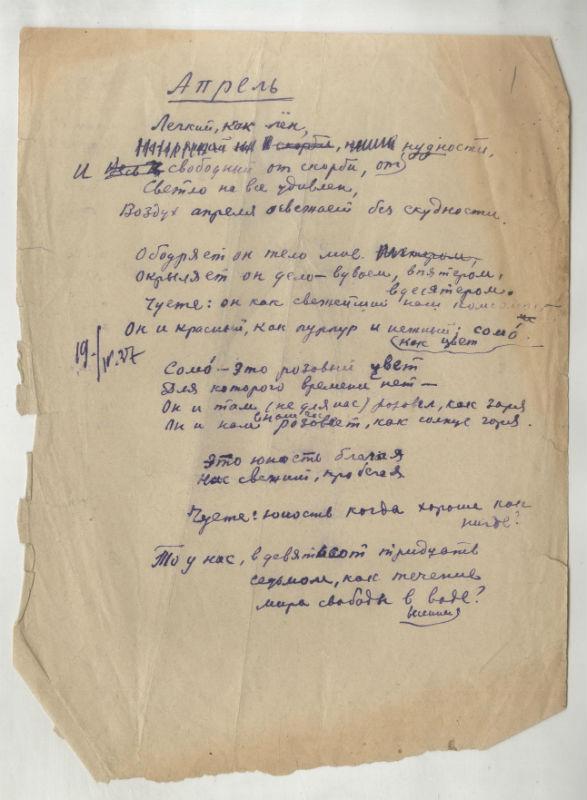 1
Апрель
Легкий, как лён,
скорби, нудности,
И свободный от скорби, от
Светло на все удивлен,
Воздух апреля освежает без скудности.
Ободряет он тело мое.
Окрыляет он дело – вдвоем, впятером,
вдесятером.
Чуете: он как свежейший наш
Он и красный, как пурпур и нежный, сомо́
как цвет
19-/IV.37
Сомо́ – это розовый цвет
Для которого времени нет –
Он и там (не для нас) розовел, как заря
Он и нам розовеет, как солнце горя.
Это юность благая
Нас свежит, пробегая
Чуете: юность когда хороша как
нигде?
То у нас, в девятьсот тридцать
седьмом, как течение
мира свободы в воде?